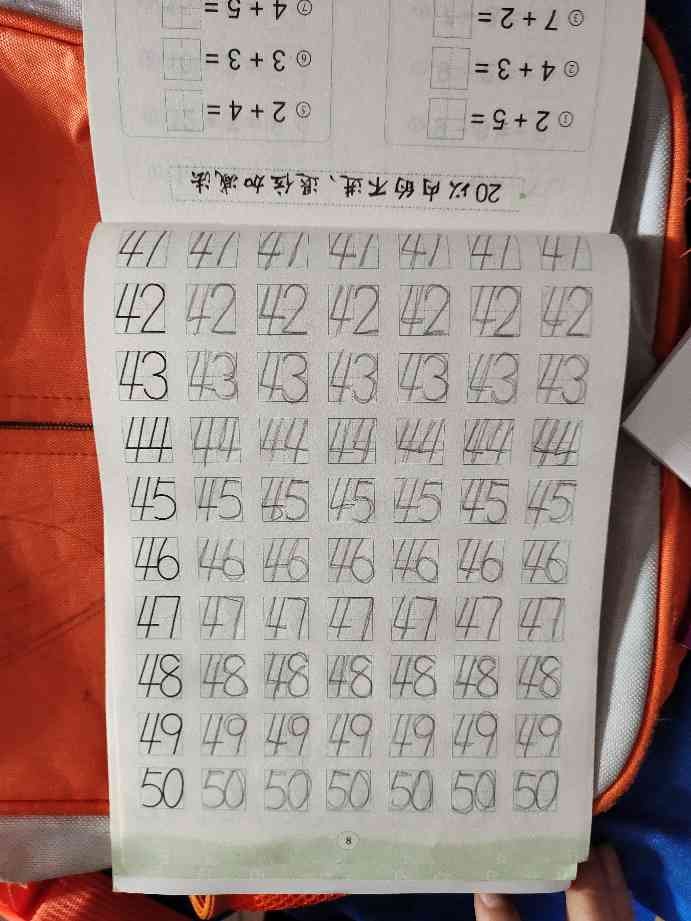 20以内的不进、退位加减法
① 2 + 5 = ⑤ 2 + 4 =
② 4 + 3 = ⑥ 3 + 3 =
③ 7 + 2 = ⑦ 4 + 5 =
41 41 41 41 41 41 41
42 42 42 42 42 42 42
43 43 43 43 43 43 43
44 44 44 44 44 44 44
45 45 45 45 45 45 45
46 46 46 46 46 46 46
47 47 47 47 47 47 47
48 48 48 48 48 48 48
49 49 49 49 49 49 49
50 50 50 50 50 50 50
8